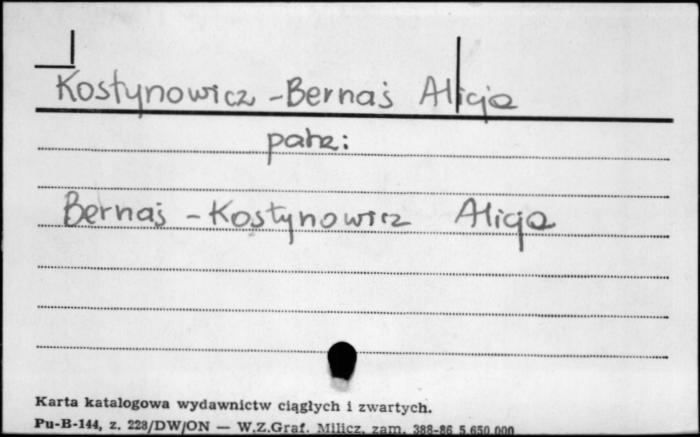 Kostynowicz - Bernaś Alicja
patrz:
Bernaś - Kostynowicz Alicja
Karta katalogowa wydawnictw ciągłych i zwartych.
Pu-B-144, z. 228/DW/ON — W.Z.Graf. Milicz, zam. 388-86 5.650.000